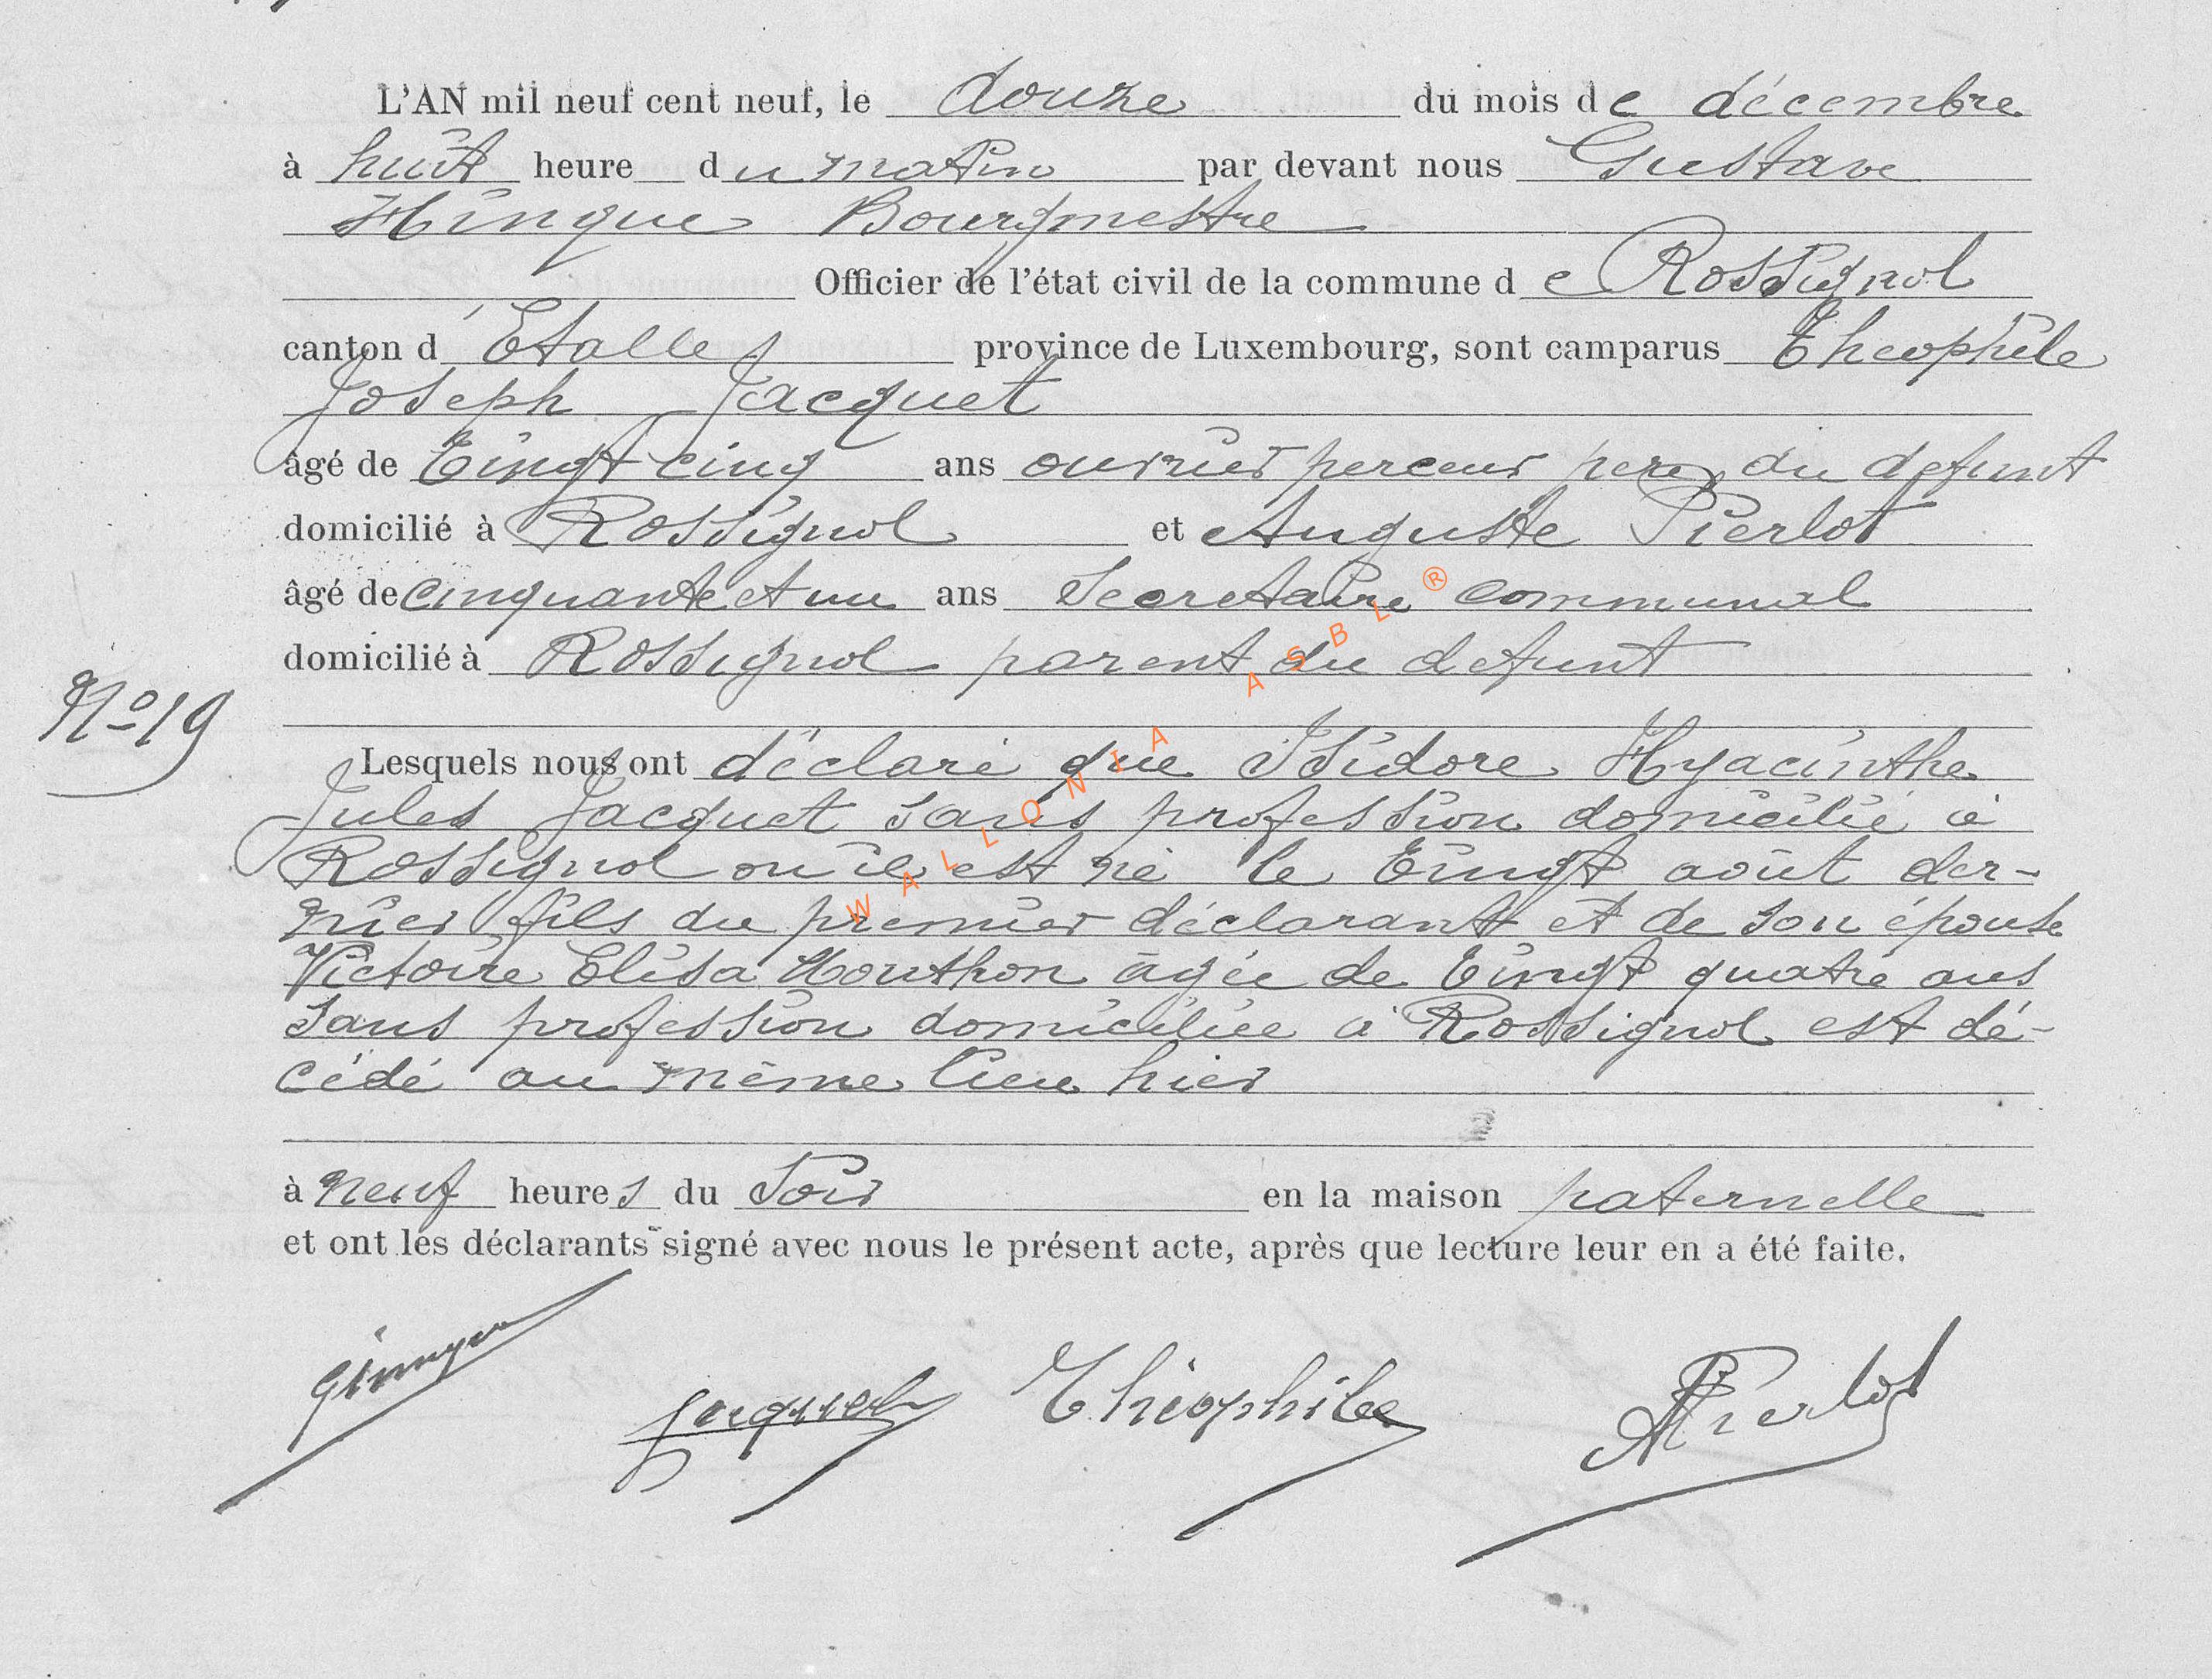 L'AN mil neuf cent neuf, le douze du mois de décembre
à huit heure du matin par devant nous Gustave
Hinque Bourgmestre
Officier de l'état civil de la commune de Rossignol
canton d'Etalle province de Luxembourg, sont camparus Theophile
Joseph Jacquet
âgé de Vingt cinq ans ouvrier perceur pere du defunt
domicilié à Rossignol et Auguste Pierlot
âgé de cinquante et un ans Secretaire communal
domicilié à Rossignol parent du defunt
N° 19
Lesquels nous ont déclaré que Isidore Hyacinthe
Jules Jacquet sans profession domicilié à
Rossignol ou il est né le Vingt août der-
nier fils du premier déclarant et de son épouse
Victoire Elisa Mouthon âgée de Vingt quatre ans
sans profession domiciliée à Rossignol est dé-
cédé au même lieu hier
à neuf heures du soir en la maison paternelle
et ont les déclarants signé avec nous le présent acte, après que lecture leur en a été faite.
GHinque Jacquet Théophile APierlot
WALLONIA ASBL ®